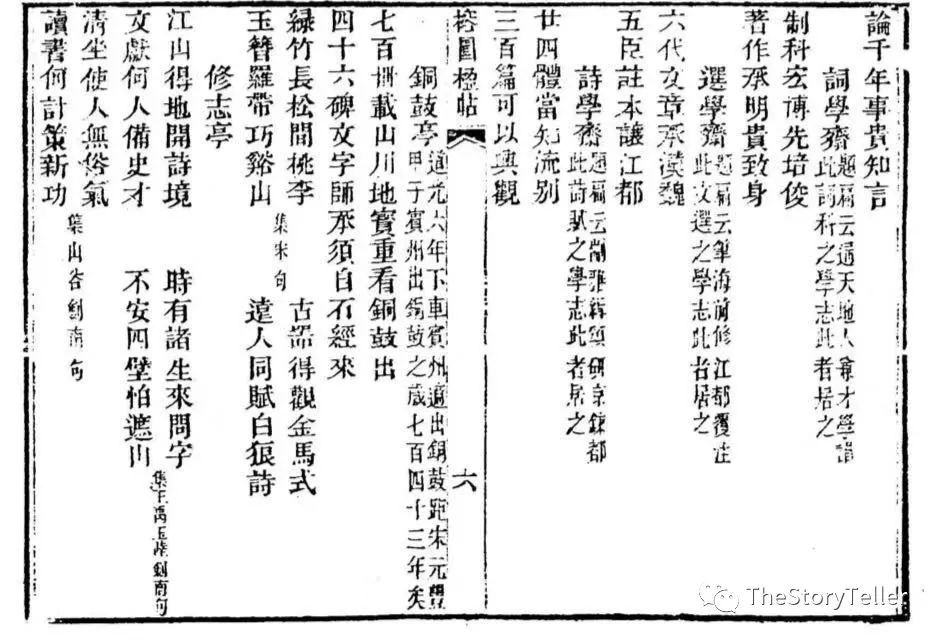 論千年事貴知言
詞學齋
題扁云通天地人兼才學識
此詞科之學志此者居之
制科宏博先培俊
著作承明貴致身
選學齋
題扁云筆海前修江都覆注
此文選之學志此者居之
六代文章承漢魏
五臣註本讓江都
詩學齋
題扁云爾雅頌研京鍊都
此詩賦之學志此者居之
廿四體當知流別
三百篇可以興觀
榕園楹帖 六
銅鼓亭
道光六年下車賓州適出銅鼓距宋元豐
甲子賓州出銅鼓之歲七百四十三年矣
七百卌載山川地寶重看銅鼓出
四十六碑文字師承須自石經來
綠竹長松間桃李
玉簪羅帶巧谿山
集宋句
古器得觀金馬式
遠人同賦白狼詩
修志亭
江山得地開詩境
文獻何人備史才
時有諸生來問字
不安四壁怕遮山
集王禹玉陸劍南句
清坐使人無俗氣
讀書何計策新功
集山谷劍南句
TheStoryTeller